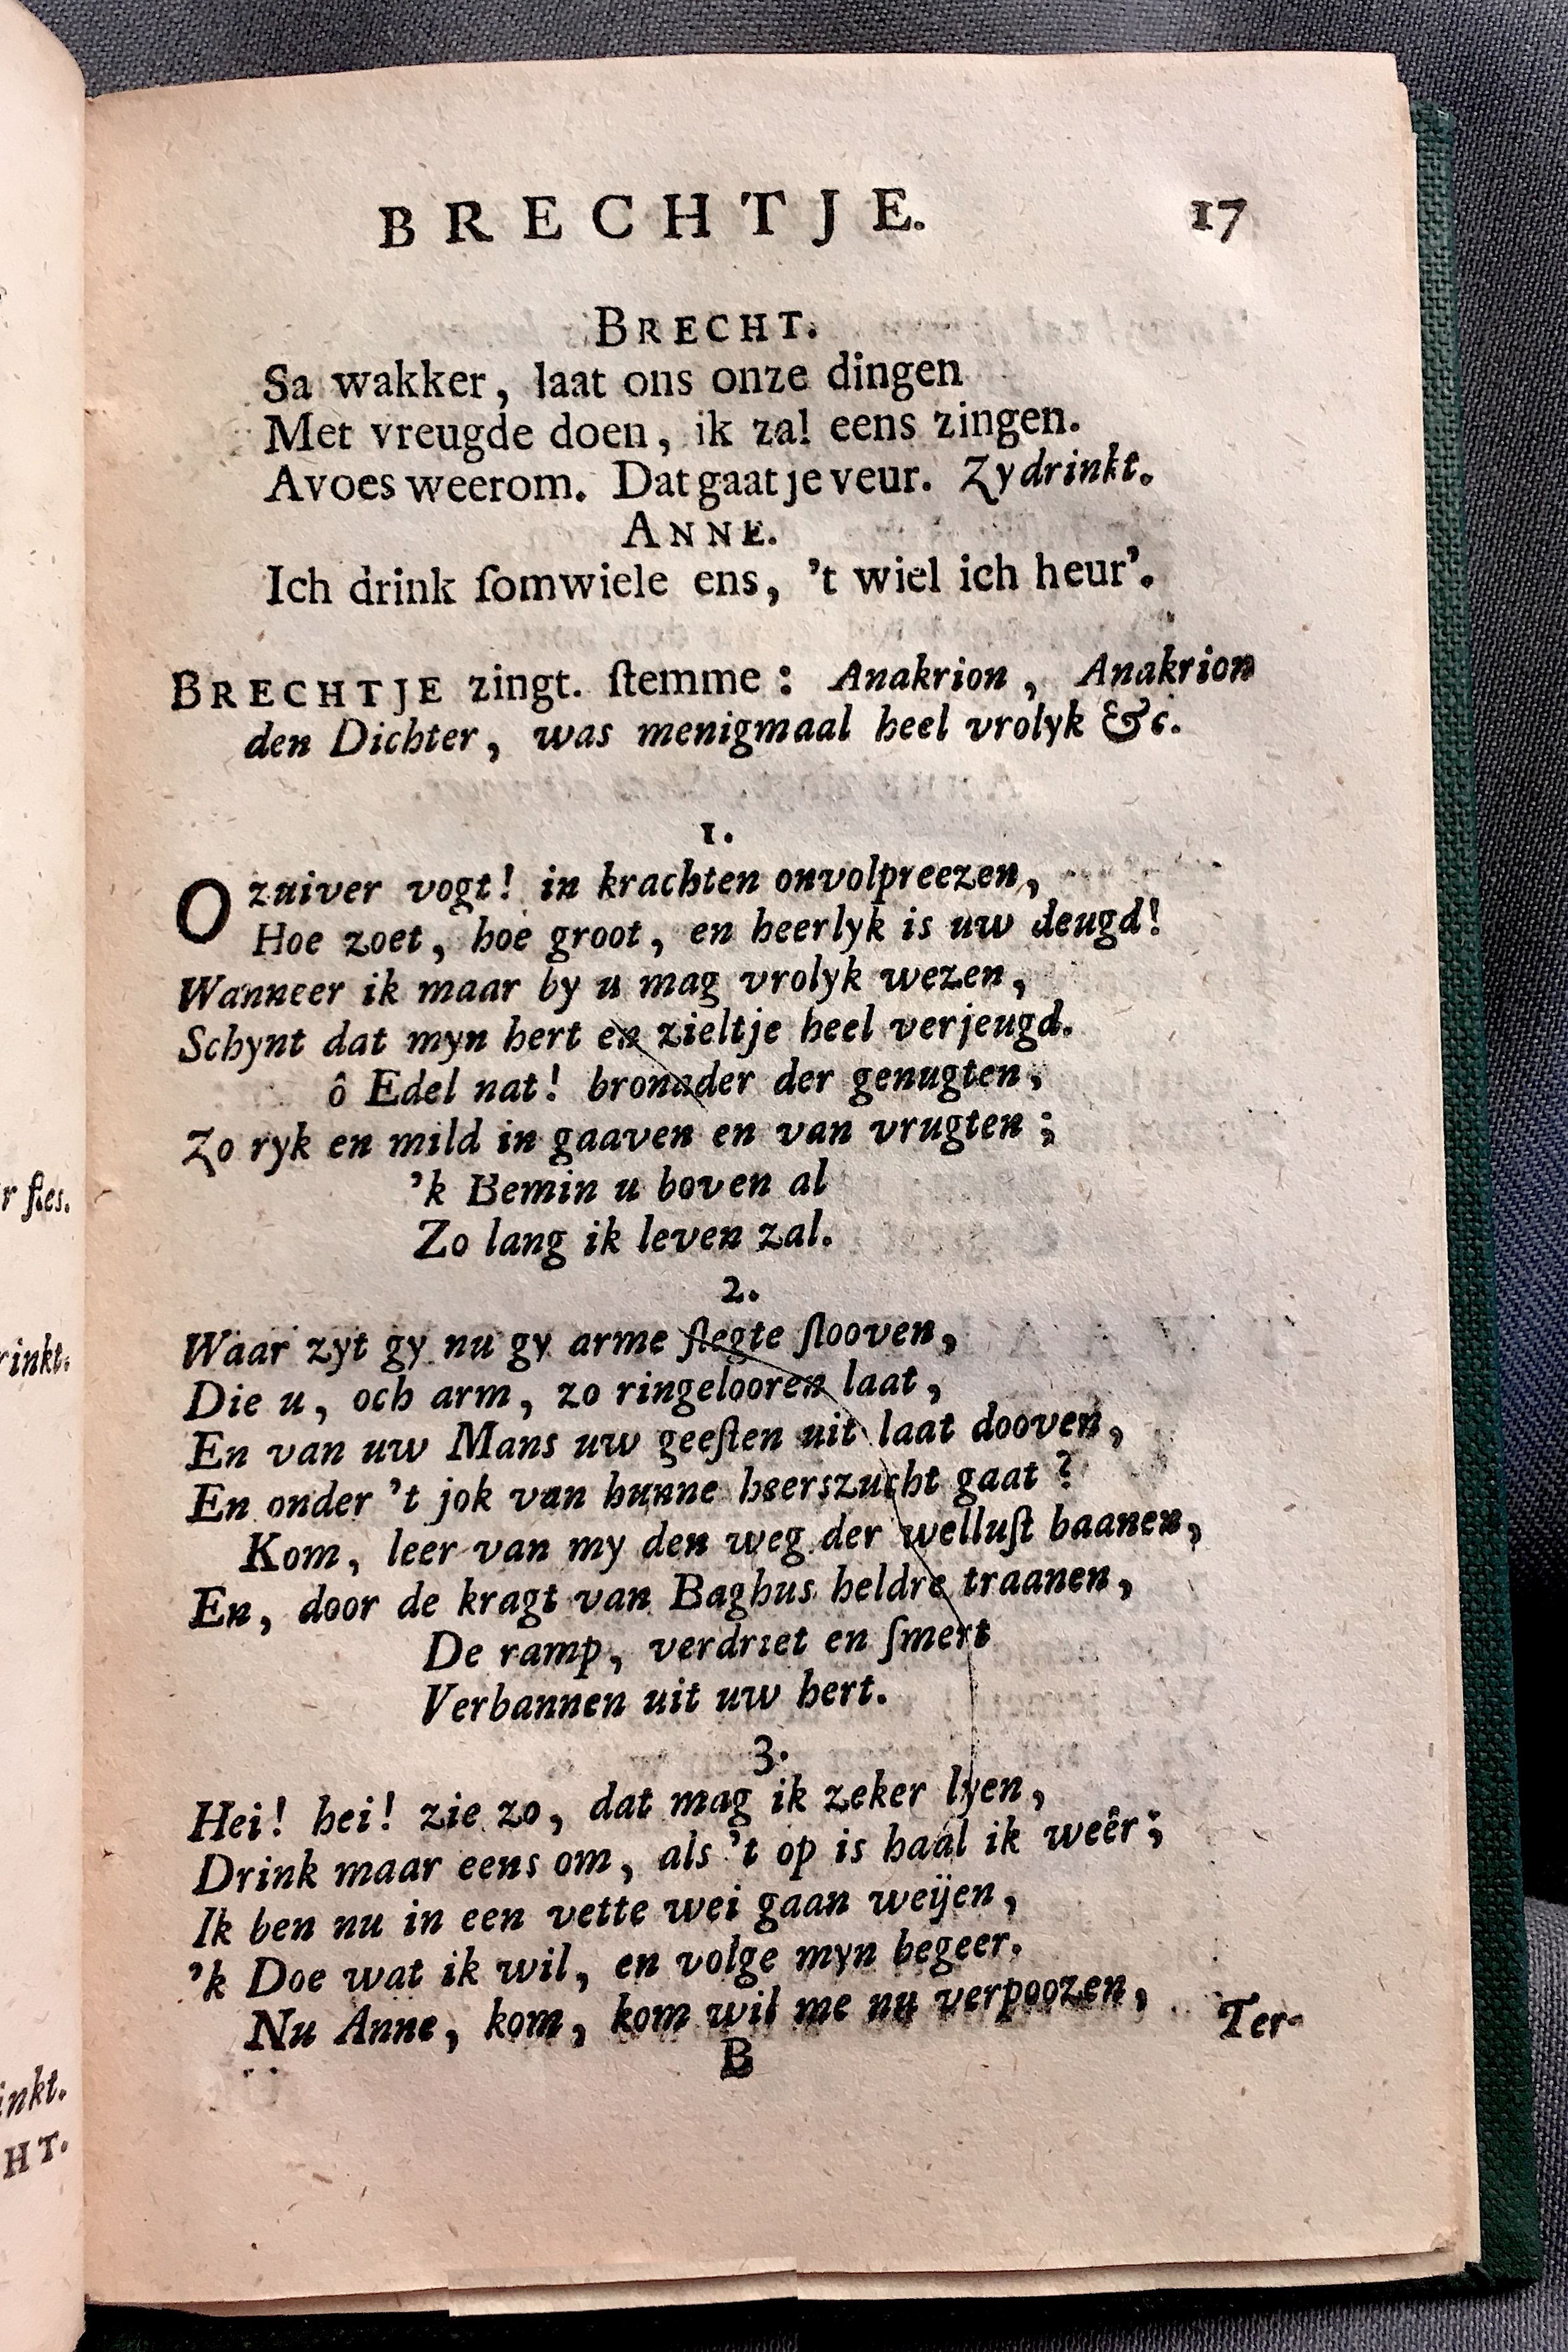 BRECHTJE. 17
BRECHT.
Sa wakker, laat ons onze dingen
Met vreugde doen, ik zal eens zingen.
Avoes weerom. Dat gaat je veur. Zy drinkt.
ANNE.
Ich drink ſomwiele ens, 't wiel ich heur'.
BRECHTJE zingt. ſtemme: Anakrion, Anakrion
den Dichter, was menigmaal heel vrolyk &c.
1.
O zuiver vogt! in krachten onvolpreezen,
Hoe zoet, hoe groot, en heerlyk is uw deugd!
Wanneer ik maar by u mag vrolyk wezen,
Schynt dat myn hert en zieltje heel verjeugd.
ô Edel nat! bronader der genugten,
Zo ryk en mild in gaaven en van vrugten;
'k Bemin u boven al
Zo lang ik leven zal.
2.
Waar zyt gy nu gy arme ſlegte ſlooven,
Die u, och arm, zo ringelooren laat,
En van uw Mans uw geeſten uit laat dooven,
En onder 't jok van hunne heerszucht gaat?
Kom, leer van my den weg der welluſt baanen,
En, door de kragt van Baghus heldre traanen,
De ramp, verdriet en ſmert
Verbannen uit uw hert.
3.
Hei! hei! zie zo, dat mag ik zeker lyen,
Drink maar eens om, als 't op is haal ik weêr;
Ik ben nu in een vette wei gaan weijen,
'k Doe wat ik wil, en volge myn begeer.
Nu Anne, kom, kom wil me nu verpoozen,
B Ter-
r fles.
rinkt.
inkt.
HT.